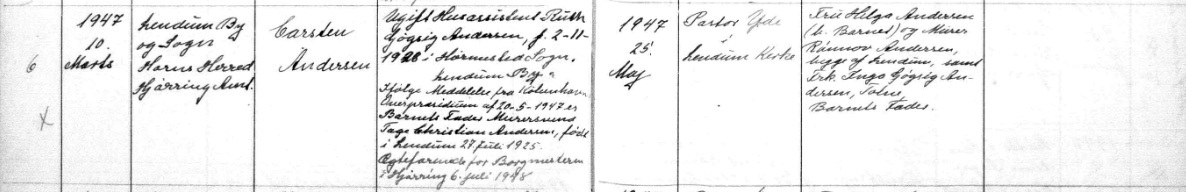 6
X
1947
10.
Marts
Lendum By
og Sogn
Horns Herred
Hjørring Amt.
Carsten
Andersen
Ugift Husassistent Ruth
Gögsig Andersen, f. 2-11-
1926 i Hormested Sogn.
Lendum By.
Ifølge Meddelelse fra Københavns
Overpræsidium af 20-5-1947 er
Barnets Fader Murersvend
Tage Christian Andersen, født
i Lendum 27. Juli 1925.
Ægtefarende for Borgmesteren
i Hjørring 6. juli 1948
1947
25.
Maj
Pastor Yde
Lendum Kirke
Fru Helga Andersen
(b. Barnet) og Murer
Rannov Andersen,
begge af Lendum, samt
Frk. Inga Gögsig An-
dersen, Tolne,
Barnets Fader.